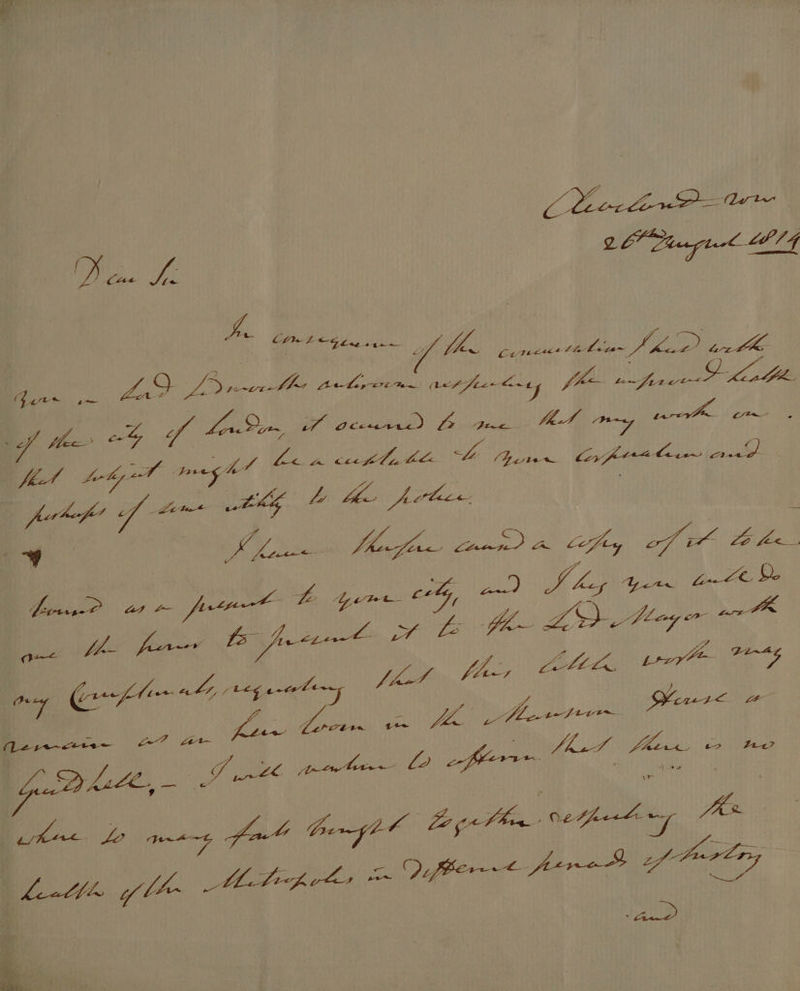 Cleveland row
26th August 1814
Dear Sir
In consequence of the conversation I had with
you in Lord Sidmouths antiroom respecting the improved health
of the city of London, it occurred to me that my work on
that subject might be acceptable to your Corporation and
perhaps of some utility to the police.
I have therfore caused a copy of it to be
bound as a present to your city, and I beg you will do
me the honor to present it to the Lord Mayor with
my Compliments, requesting that this little work may
remain as an heir loom in the Mansion House or
Guildhall, – I will venture to affirm that there is no
where so many facts brought together respecting the
health of the Metropolis in different periods of history
and